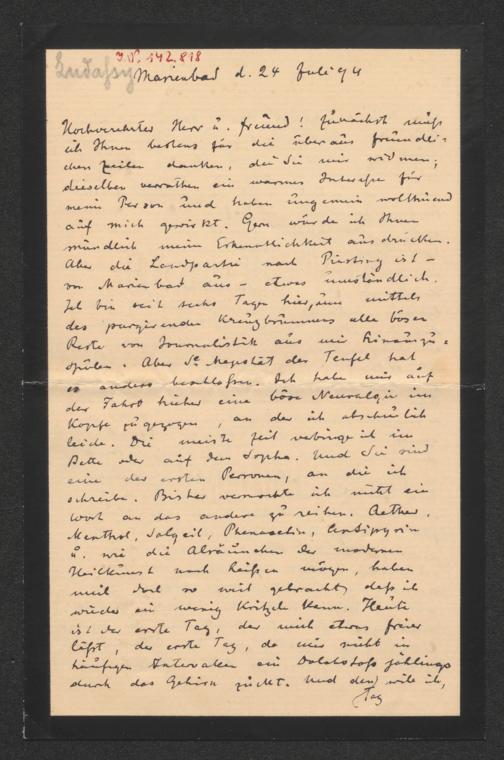 I.N. 142.818
Ludassy
Marienbad d. 24 Juli 94
Hochverehrter Herr u. Freund! Zunächst muß
ich Ihnen bestens für die überaus freundli-
chen Zeilen danken, die Sie mir widmen;
dieselben verrathen ein warmes Interesse für
meine Person und haben ungemein wolthuend
auf mich gewirkt. Gern würde ich Ihnen
mündlich meine Erkenntlichkeit ausdrücken.
Aber die Landpartie nach Piesting ist –
von Marienbad aus – etwas umständlich.
Ich bin seit sechs Tagen hier, um mittels
des purgirenden Kreuzbrunnens alle bösen
Reste von Journalistik aus mir hinauszu-
spülen. Aber Se Majestät der Teufel hat
es anders beschlossen. Ich habe mir auf
der Fahrt hieher eine böse Neuralgie im
Kopfe zugezogen, an der ich abscheulich
leide. Die meiste Zeit verbringe ich im
Bette oder auf dem Sopha. Und Sie sind
eine der ersten Personen, an die ich
schreibe. Bisher vermochte ich nicht ein
Wort an das andere zu reihen. Aether,
Menthol, Phenacetin, Antipyrin
u. wie die Alräunchen der modernen
Heilkunst noch heißen mögen, haben
mich doch so weit gebracht, daß ich
wieder ein wenig kritzeln kann. Heute
ist der erste Tag, der mich etwas freier
läßt, der erste Tag, da mir nicht in
häufigen Intervallen ein Dolchstoß jählings
durch das Gehirn zuckt. Und den will ich,
Tag